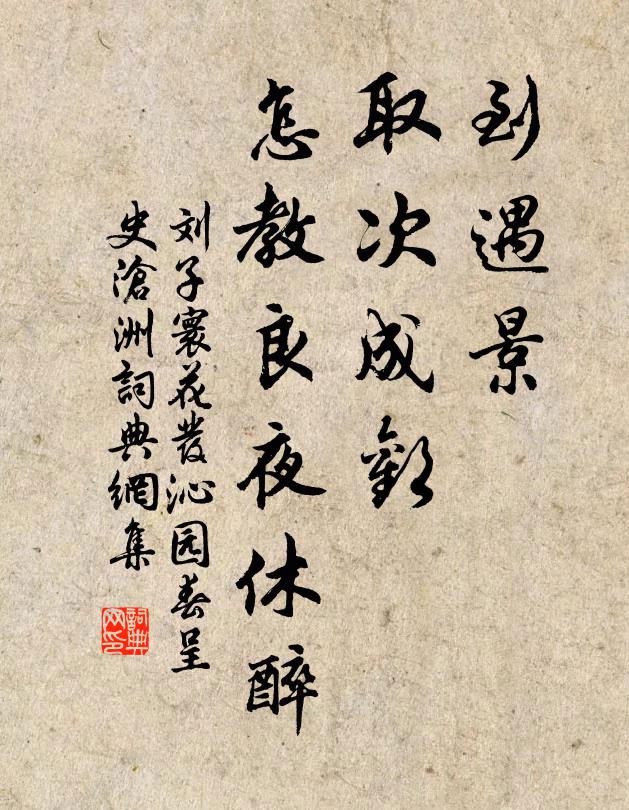 到遇景
取次成欢
怎教良夜休醉
刘子寰花发沁园春呈
史沧洲詞典網集
詞典
网印